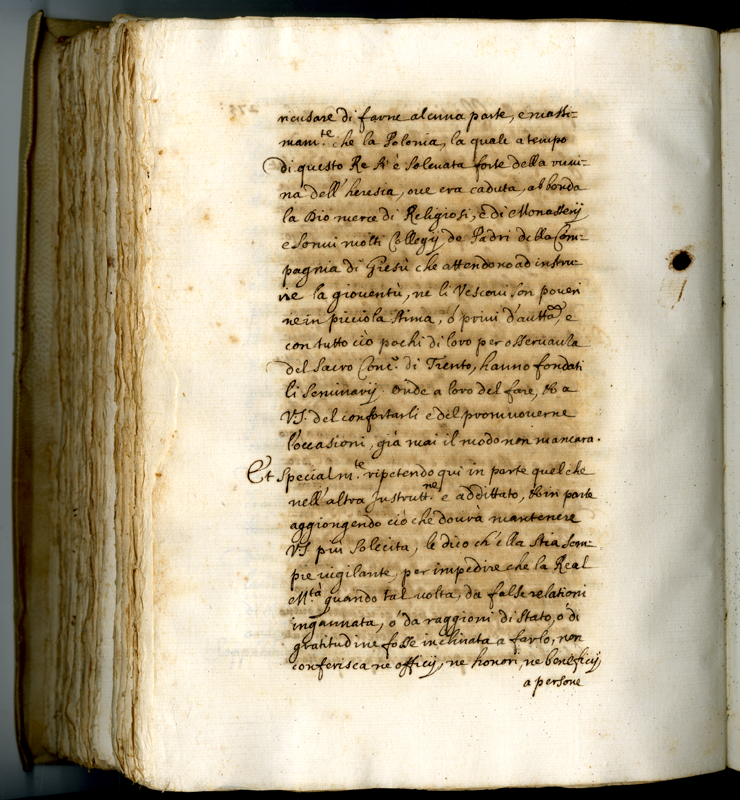 ricusare di farne alcuna parte, e massi=
mam.te che la Polonia, la quale a tempo
di questo Re si è solevata forte della rui=
na dell' heresia, ove era caduta, abbonda
la Dio merce di Religiosi, e di Monasterij
e sonui molti Collegij de Padri della Com=
pagnia di Giesù che attendono ad instru=
ire la gioventù, ne li Vescoui son poueri
ne in picciola stima, ó priui d'autta, e
con tutto ciò pochi di loro per osseruanza
del Sacro Conc.º di Trento, hanno fondati
li Seminarij. Onde a loro del fare, & a
VS. del confortarli e del promuouerne
l'occasioni, già mai il modo non mancara.
Et specialm.te ripetendo qui in parte quel che
nell' altra Instrutt.ne e addittato, & in parte
aggiongendo ciò che dourà mantenere
VS più sollecita, le dico ch' ella stia sem=
pre vigilante, per impedire che la Real
M.tà quando tal volta, da false relationi
ingannata, ó da raggioni di stato, ó di
gratitudine fosse inchinata a farlo, non
conferisca ne officij, ne honori, ne beneficij,
a persone